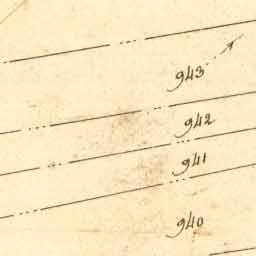 943
942
941
940